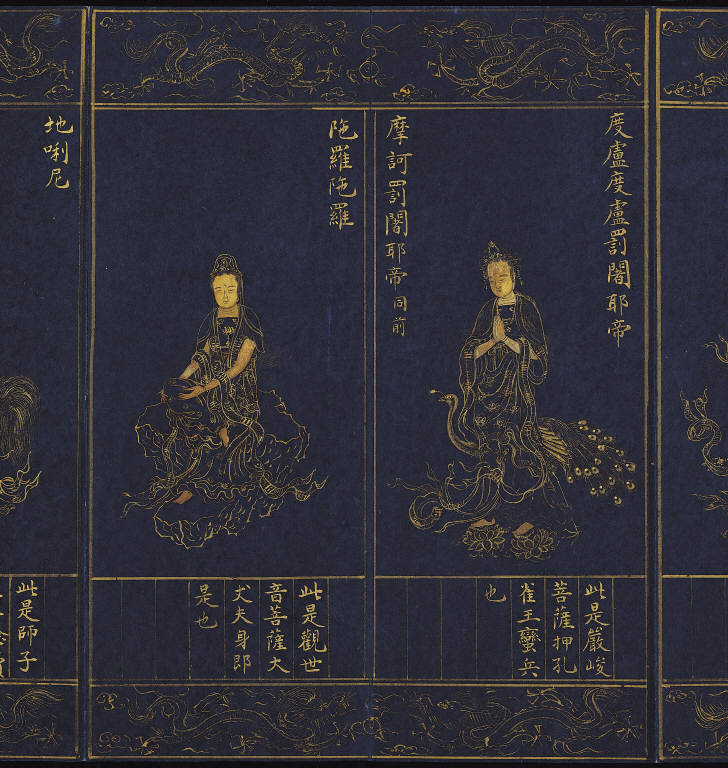 度盧度盧罰闍耶帝
摩訶罰闍耶帝同前
此是嚴峻
菩薩押孔
雀王蠻兵
也
陁羅陁羅
此是觀世
音菩薩大
丈夫身即
是也
地唎尼
此是師子